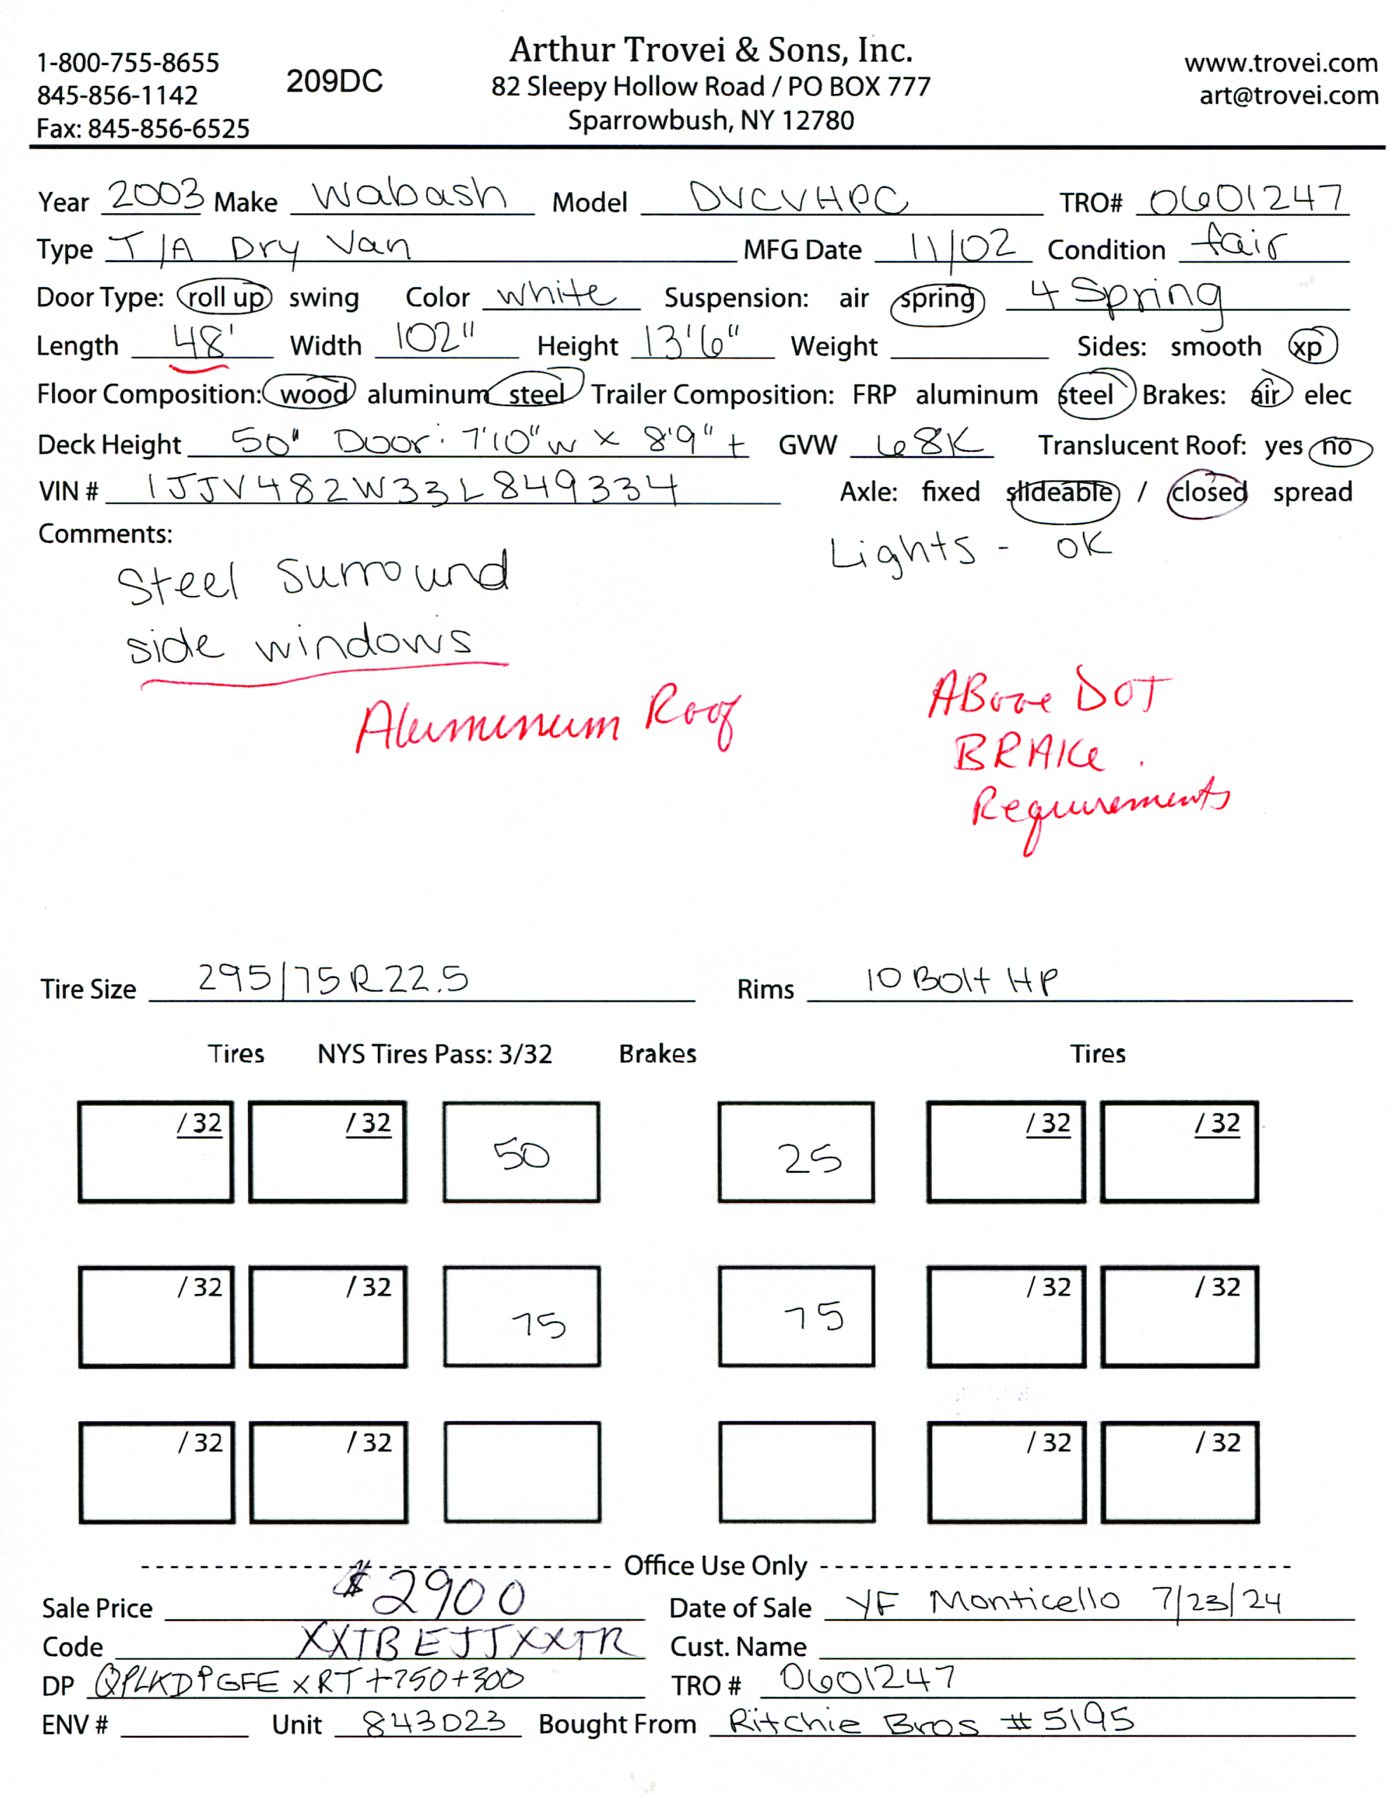 Arthur Trovei & Sons, Inc.
1-800-755-8655 209DC 82 Sleepy Hollow Road / PO BOX 777 www.trovei.com
845-856-1142 Sparrowbush, NY 12780 art@trovei.com
Fax: 845-856-6525
Year 2003 Make Wabash Model DVCVHPC TRO# 0601247
Type T/A Dry Van MFG Date 11/02 Condition fair
Door Type: roll up swing Color white Suspension: air spring 4 Spring
Length 48' Width 102" Height 13'6" Weight Sides: smooth xp
Floor Composition: wood aluminum steel Trailer Composition: FRP aluminum steel Brakes: air elec
Deck Height 50" Door: 7'10"w x 8'9"t GVW 68K Translucent Roof: yes no
VIN # 1JJV482W33L849334 Axle: fixed slideable / closed spread
Comments: Lights - OK
Steel Surround
side windows
Aluminum Roof
ABove DOT
BRAKe.
Requirements
Tire Size 295/75R22.5 Rims 10 Bolt HP
Tires NYS Tires Pass: 3/32 Brakes Tires
/ 32 / 32 50 25 / 32 / 32
/ 32 / 32 75 75 / 32 / 32
/ 32 / 32 / 32 / 32
Office Use Only
Sale Price $2900 Date of Sale YF Monticello 7/23/24
Code XXTBEJJXXTR Cust. Name
DP QPLKDPGFE xRT+750+300 TRO # 0601247
ENV # Unit 843023 Bought From Ritchie Bros #5195